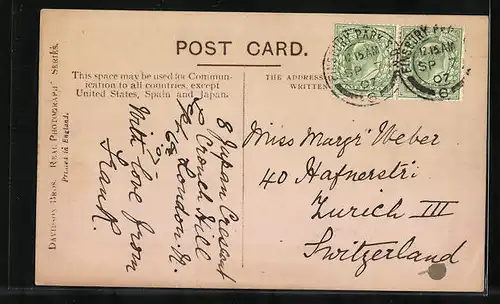 POST CARD.
This space may be used for Commun-
ication to all countries, except
United States, Spain and Japan.
THE ADDRESS
WRITTEN
DAVIDSON BROS. REAL PHOTOGRAPHIC SERIES.
Printed in England.
FINSBURY PARK S.
12.15 AM
SP
07
FINSBURY PARK
12.15 AM
SP
07
8 Japan Crescent
Crouch Hill
London N.
With love from
Frank.
Miss Margr Weber
40 Hafnerstr
Zurich III
Switzerland